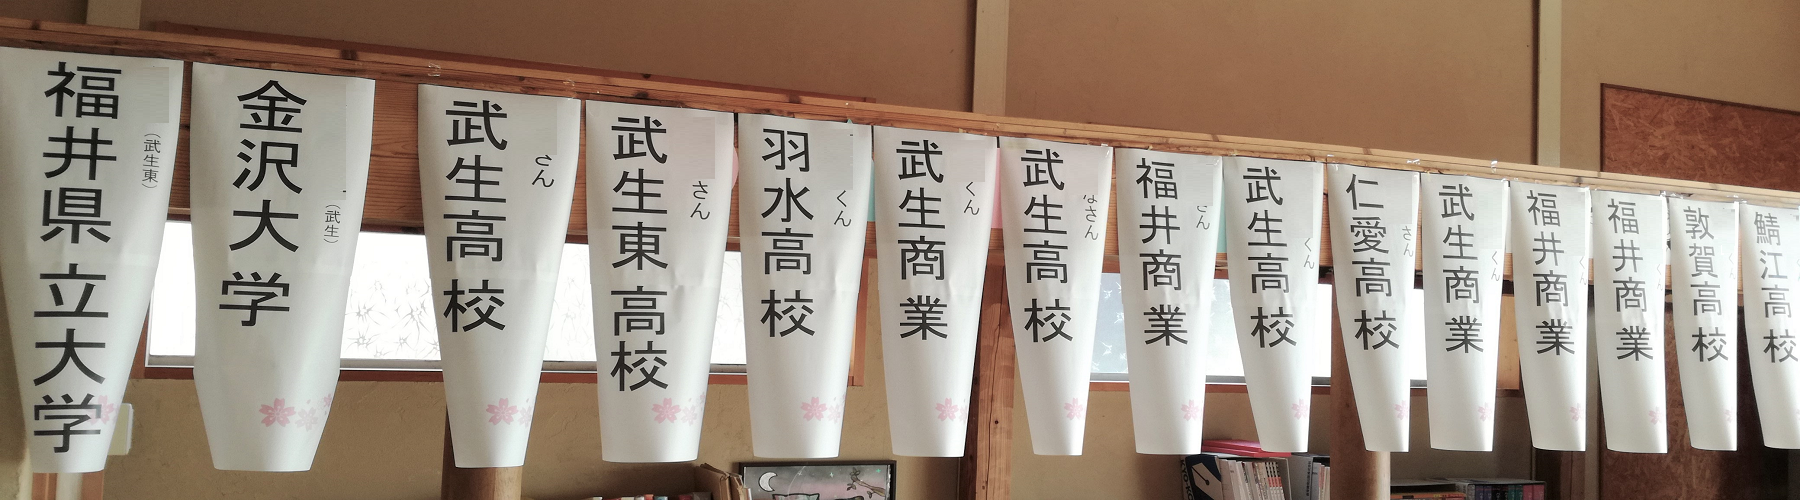 福井県立大学
（武生東）
金沢大学
（武生）
武生高校
さん
武生東高校
さん
羽水高校
くん
武生商業
くん
武生高校
さん
福井商業
さん
武生高校
くん
仁愛高校
さん
武生商業
くん
福井商業
くん
福井商業
くん
敦賀高校
鯖江高校